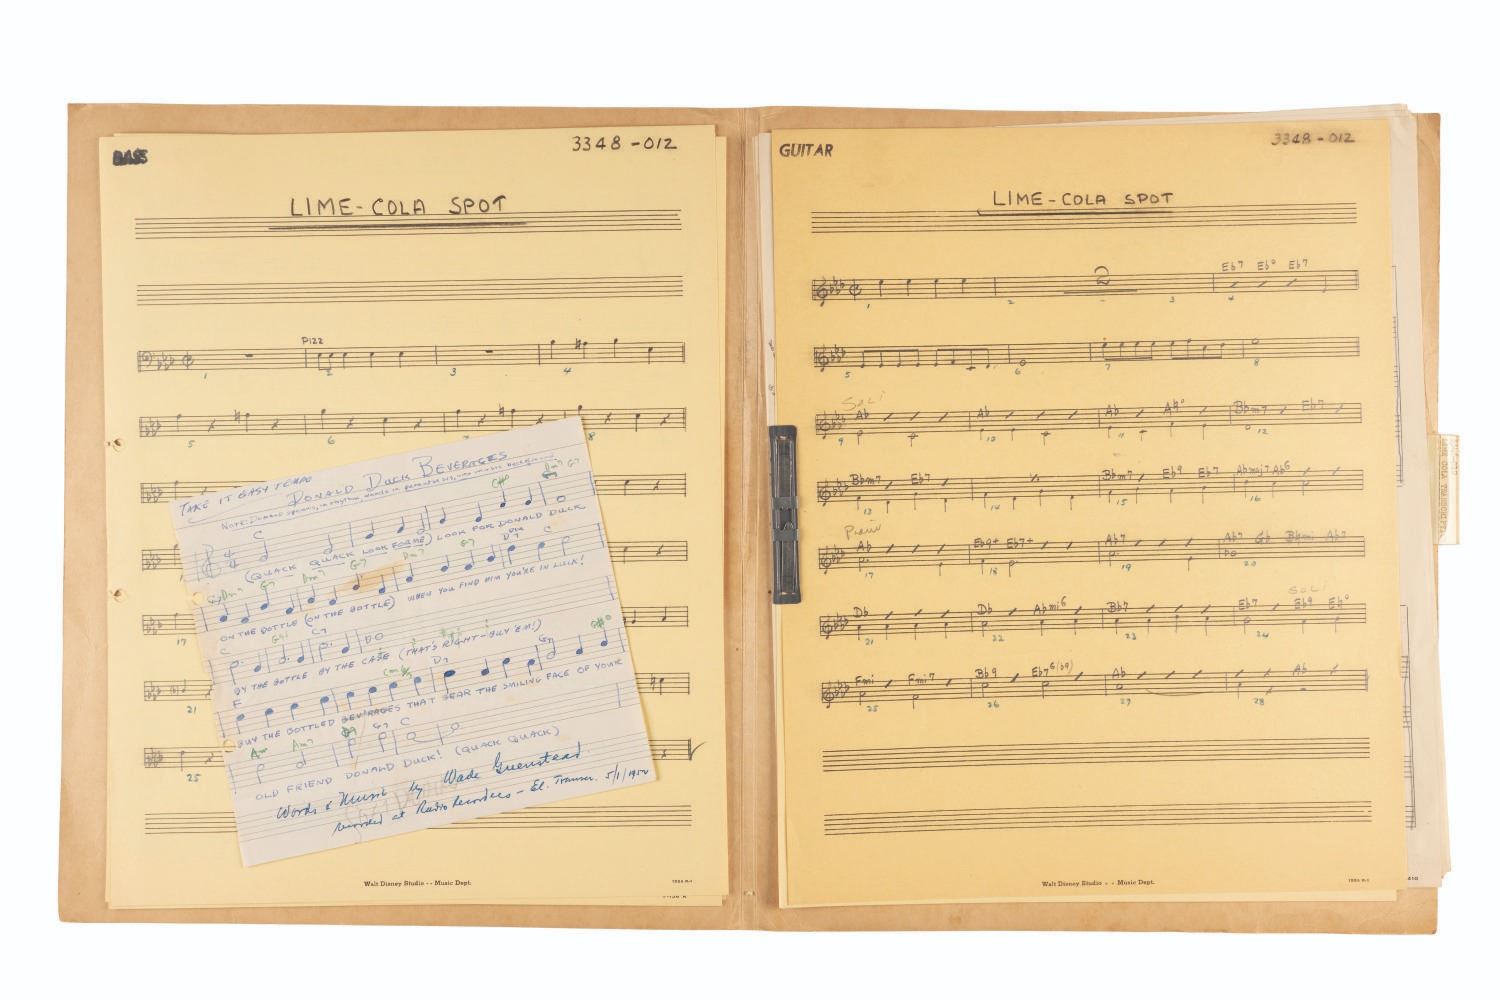 BASS
3348-012
LIME-COLA SPOT
PIZZ
1 2 3 4
5 6 8
17
21
25
Walt Disney Studio - - Music Dept.
TAKE IT EASY TEMPO
DONALD DUCK BEVERAGES
C
(QUACK QUACK LOOK FOR ME) LOOK FOR DONALD DUCK
ON THE BOTTLE (ON THE BOTTLE) WHEN YOU FIND HIM YOU'RE IN LUCK!
BY THE BOTTLE BY THE CASE (THAT'S RIGHT-BUY 'EM!)
BUY THE BOTTLED BEV'RAGES THAT BEAR THE SMILING FACE OF YOUR
OLD FRIEND DONALD DUCK! (QUACK QUACK)
Words & Music by Wade Greenstead
recorded at Radio Recorders - El. Transcr. 5/1/1950
GUITAR
3348-012
LIME-COLA SPOT
2
Eb7 Ebo Eb7
1 2 3 4
5 6 7 8
Soli
Ab Ab Ab Bbm7 Eb7
9 10 11 12
Bbm7 Eb7 Bbm7 Eb9 Eb7 Abmaj7 Ab6
13 14 15 16
Piano
Ab Eb9+ Eb7+ Ab7 Ab7 Gb Bbmi Ab7
17 18 19 20
Soli
Db Db Abmi6 Bb7 Eb7 Eb9 Ebo
21 22 23 24
Fmi Fmi7 Bb9 Eb7 6(b9) Ab Ab
25 26 27 28
Walt Disney Studio - - Music Dept.